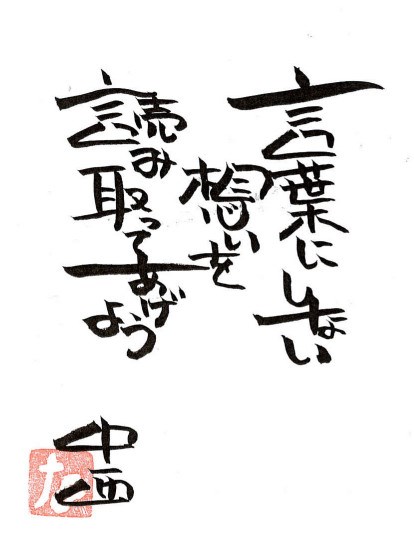 言葉にしない
想いを
読み取ってあげよう
中西